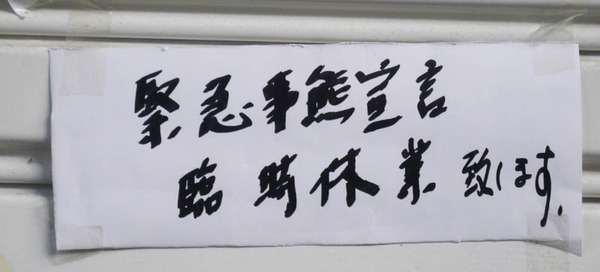 緊急事熊宣言
臨時休業致します.